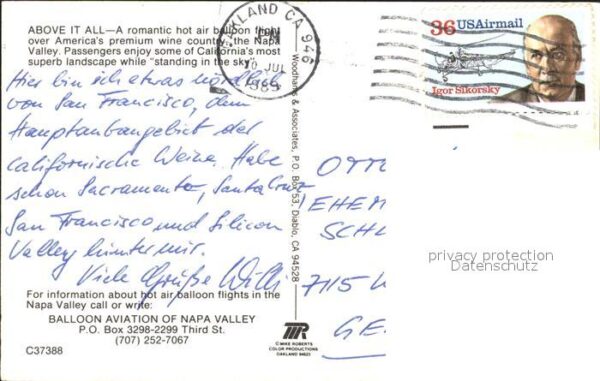 ABOVE IT ALL—A romantic hot air balloon flight
over America's premium wine country, the Napa
Valley. Passengers enjoy some of California's most
superb landscape while "standing in the sky
OAKLAND CA 946
PM
10 JUL
1989
36 USAirmail
Igor Sikorsky
Hier bin ich etwas nördlich
von San Francisco, dem
Hauptanbaugebiet der
californische Weine. Habe
schon Sacramento, Santa Cruz
San Francisco und Silicon
Valley hinter mir.
Viele Grüße Willi
Woodhall & Associates, P.O. Box 53, Diablo, CA 94528
OTT
EHEM
SCHL
7115
GE
privacy protection
Datenschutz
For information about hot air balloon flights in the
Napa Valley call or write:
BALLOON AVIATION OF NAPA VALLEY
P.O. Box 3298-2299 Third St.
(707) 252-7067
C37388
©MIKE ROBERTS
COLOR PRODUCTIONS
OAKLAND 94623